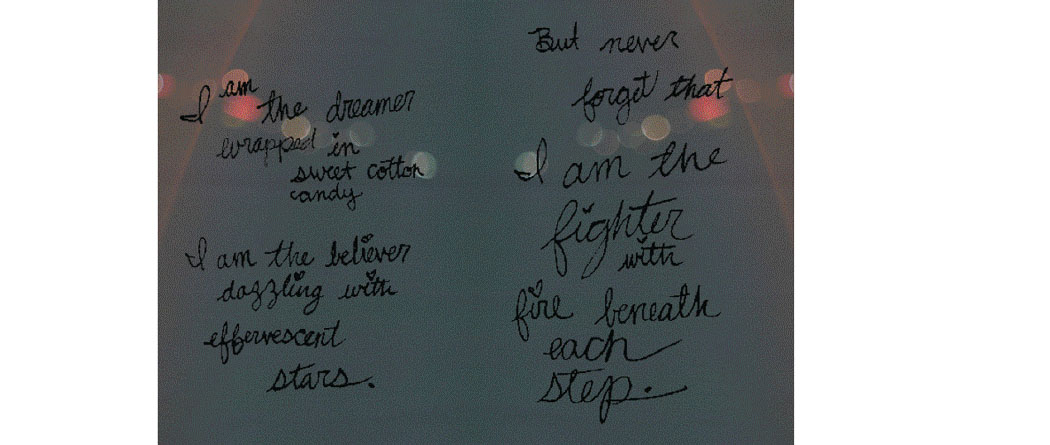 I am the dreamer
wrapped in
sweet cotton
candy
I am the believer
dazzling with
effervescent
stars.
But never
forget that
I am the
fighter
with
fire beneath
each
step.